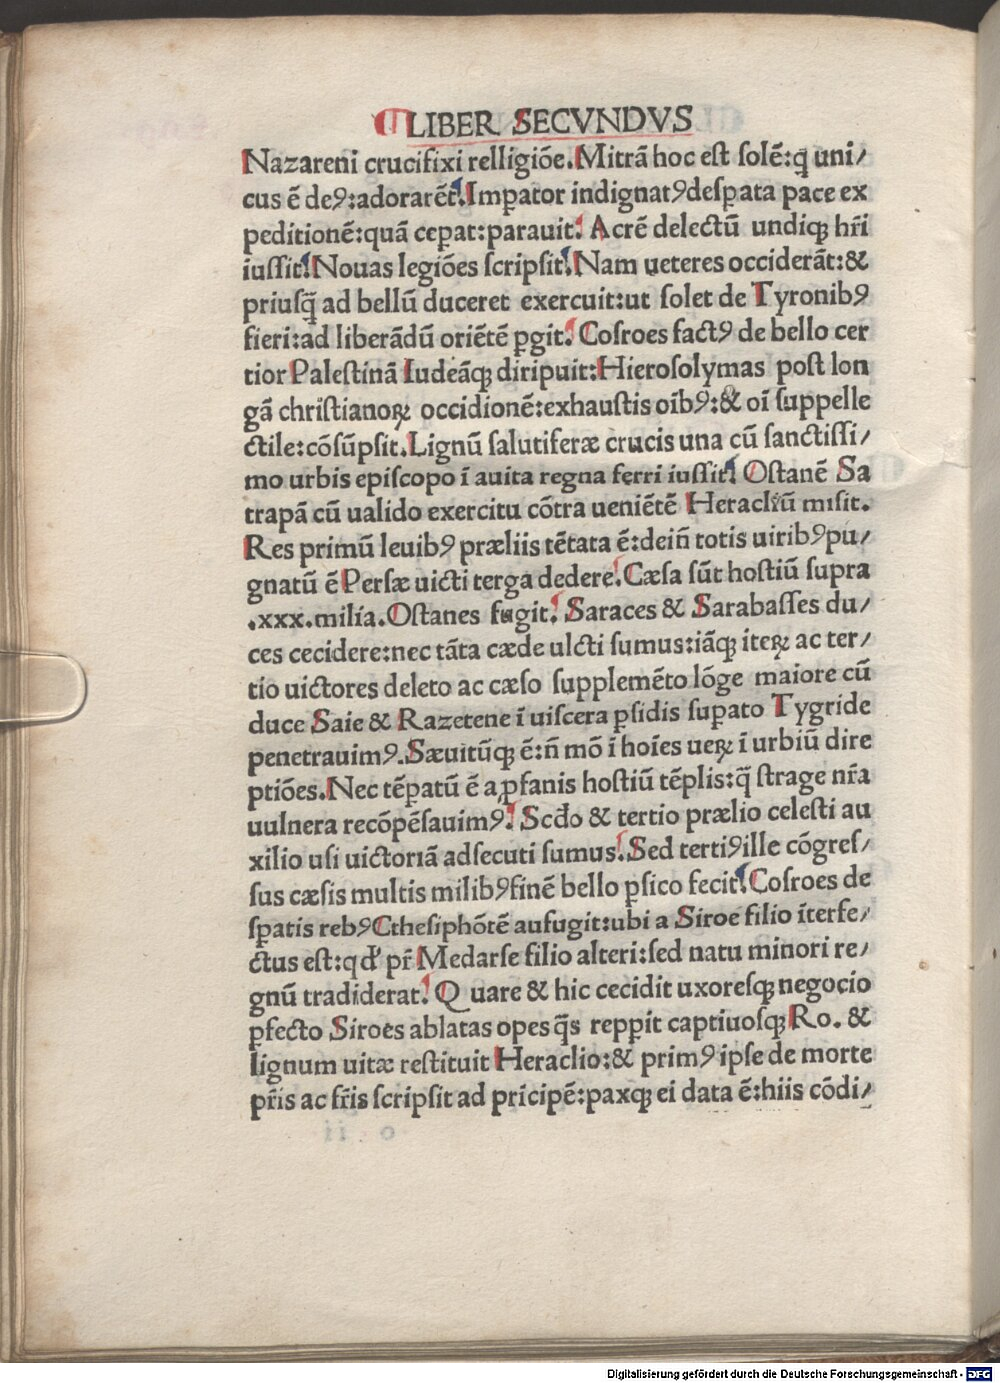 LIBER SECVNDVS
Nazareni crucifixi relligiōe. Mitrā hoc eſt ſolē: q̄ uni/
cus ē deꝰ: adorarēt. Imꝑator indignatꝰ deſꝑata pace ex
peditionē: quā ceꝑat: parauit. Acrē delectū undiqꝫ hr̄i
iuſſit. Nouas legiōes ſcripſit. Nam ueteres occiderāt: &
priuſq̄ ad bellū duceret exercuit: ut ſolet de Tyronibꝰ
fieri: ad liberādū oriētē ꝑgit. Coſroes factꝰ de bello cer
tior Paleſtinā Iudeāqꝫ diripuit: Hieroſolymas poſt lon
gā chriſtianoꝝ occidionē: exhauſtis oībꝰ: & oī ſuppelle
ctile: cōſūpſit. Lignū ſalutiferæ crucis una cū ſanctiſſi/
mo urbis epiſcopo ī auita regna ferri iuſſit. Oſtanē Sa
trapā cū ualido exercitu cōtra ueniētē Heracliū miſit.
Res primū leuibꝰ præliis tētata ē: dein̄ totis uiribꝰ pu/
gnatū ē Perſæ uicti terga dedere. Cæſa ſūt hoſtiū ſupra
.xxx. milia. Oſtanes fugit. Saraces & Sarabaſſes du/
ces cecidere: nec tāta cæde ulcti ſumus: iāqꝫ iteꝝ ac ter/
tio uictores deleto ac cæſo ſupplemēto lōge maiore cū
duce Saie & Razetene ī uiſcera ꝑſidis ſuꝑato Tygride
penetrauimꝰ. Sæuitūqꝫ ē: n̄ mō ī hoīes ueꝝ ī urbiū dire
ptiōes. Nec tēꝑatū ē a ꝓfanis hoſtiū tēplis: q̄ ſtrage nr̄a
uulnera recōpēſauimꝰ. Scd̄o & tertio prælio celeſti au
xilio uſi uictoriā adſecuti ſumus. Sed tertiꝰ ille cōgreſ/
ſus cæſis multis milibꝰ finē bello ꝑſico fecit. Coſroes de
ſꝑatis rebꝰ Ctheſiphōtē aufugit: ubi a Siroe filio īterfe/
ctus eſt: qd' pr̄ Medarſe filio alteri: ſed natu minori re/
gnū tradiderat. Quare & hic cecidit uxoreſqꝫ negocio
ꝑfecto Siroes ablatas opes q̄s repꝑit captiuoſqꝫ Ro. &
lignum uitæ reſtituit Heraclio: & primꝰ ipſe de morte
pr̄is ac fr̄is ſcripſit ad prīcipē: paxqꝫ ei data ē: hiis cōdi/
Digitalisierung gefördert durch die Deutsche Forschungsgemeinschaft - DFG